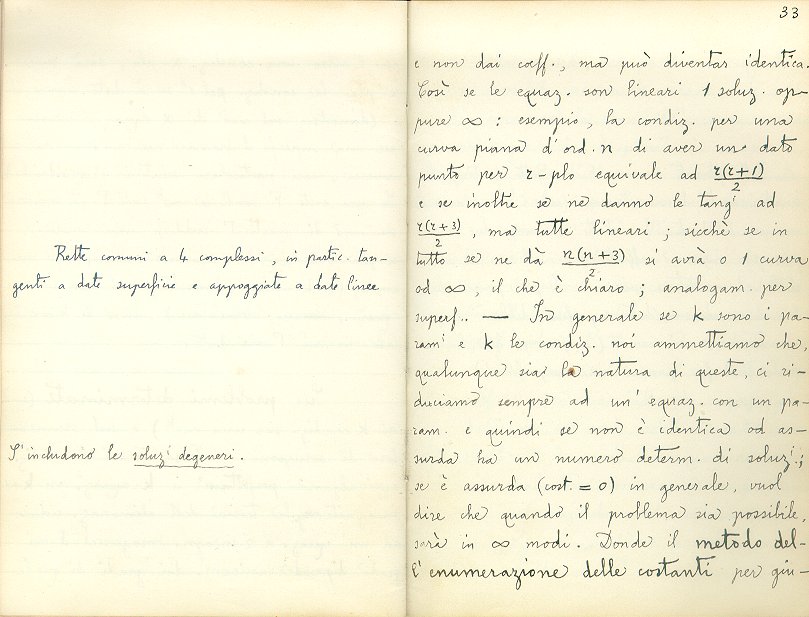 Rette comuni a 4 complessi, in partic. tan-
genti a date superficie e appoggiate a date linee
S'includono le soluzⁱ degeneri.
33
e non dai coeff., ma può diventar identica.
Così se le equaz. son lineari 1 soluz. op-
pure ∞ : esempio, la condiz. per una
curva piana d'ord. n di aver un dato
punto per r-plo equivale ad r(r+1)/2
e se inoltre se ne danno le tangⁱ ad
r(r+3)/2, ma tutte lineari; sicchè se in
tutto se ne dà n(n+3)/2 si avrà o 1 curva
od ∞, il che è chiaro; analogam. per
superf.. — In generale se k sono i pa-
ramⁱ e k le condiz. noi ammettiamo che,
qualunque sia la natura di queste, ci ri-
duciamo sempre ad un' equaz. con un pa-
ram. e quindi se non è identica od as-
surda ha un numero determ. di soluzⁱ.;
se è assurda (cost. = 0) in generale, vuol
dire che quando il problema sia possibile,
sarà in ∞ modi. Donde il metodo del-
l'enumerazione delle costanti per giu-